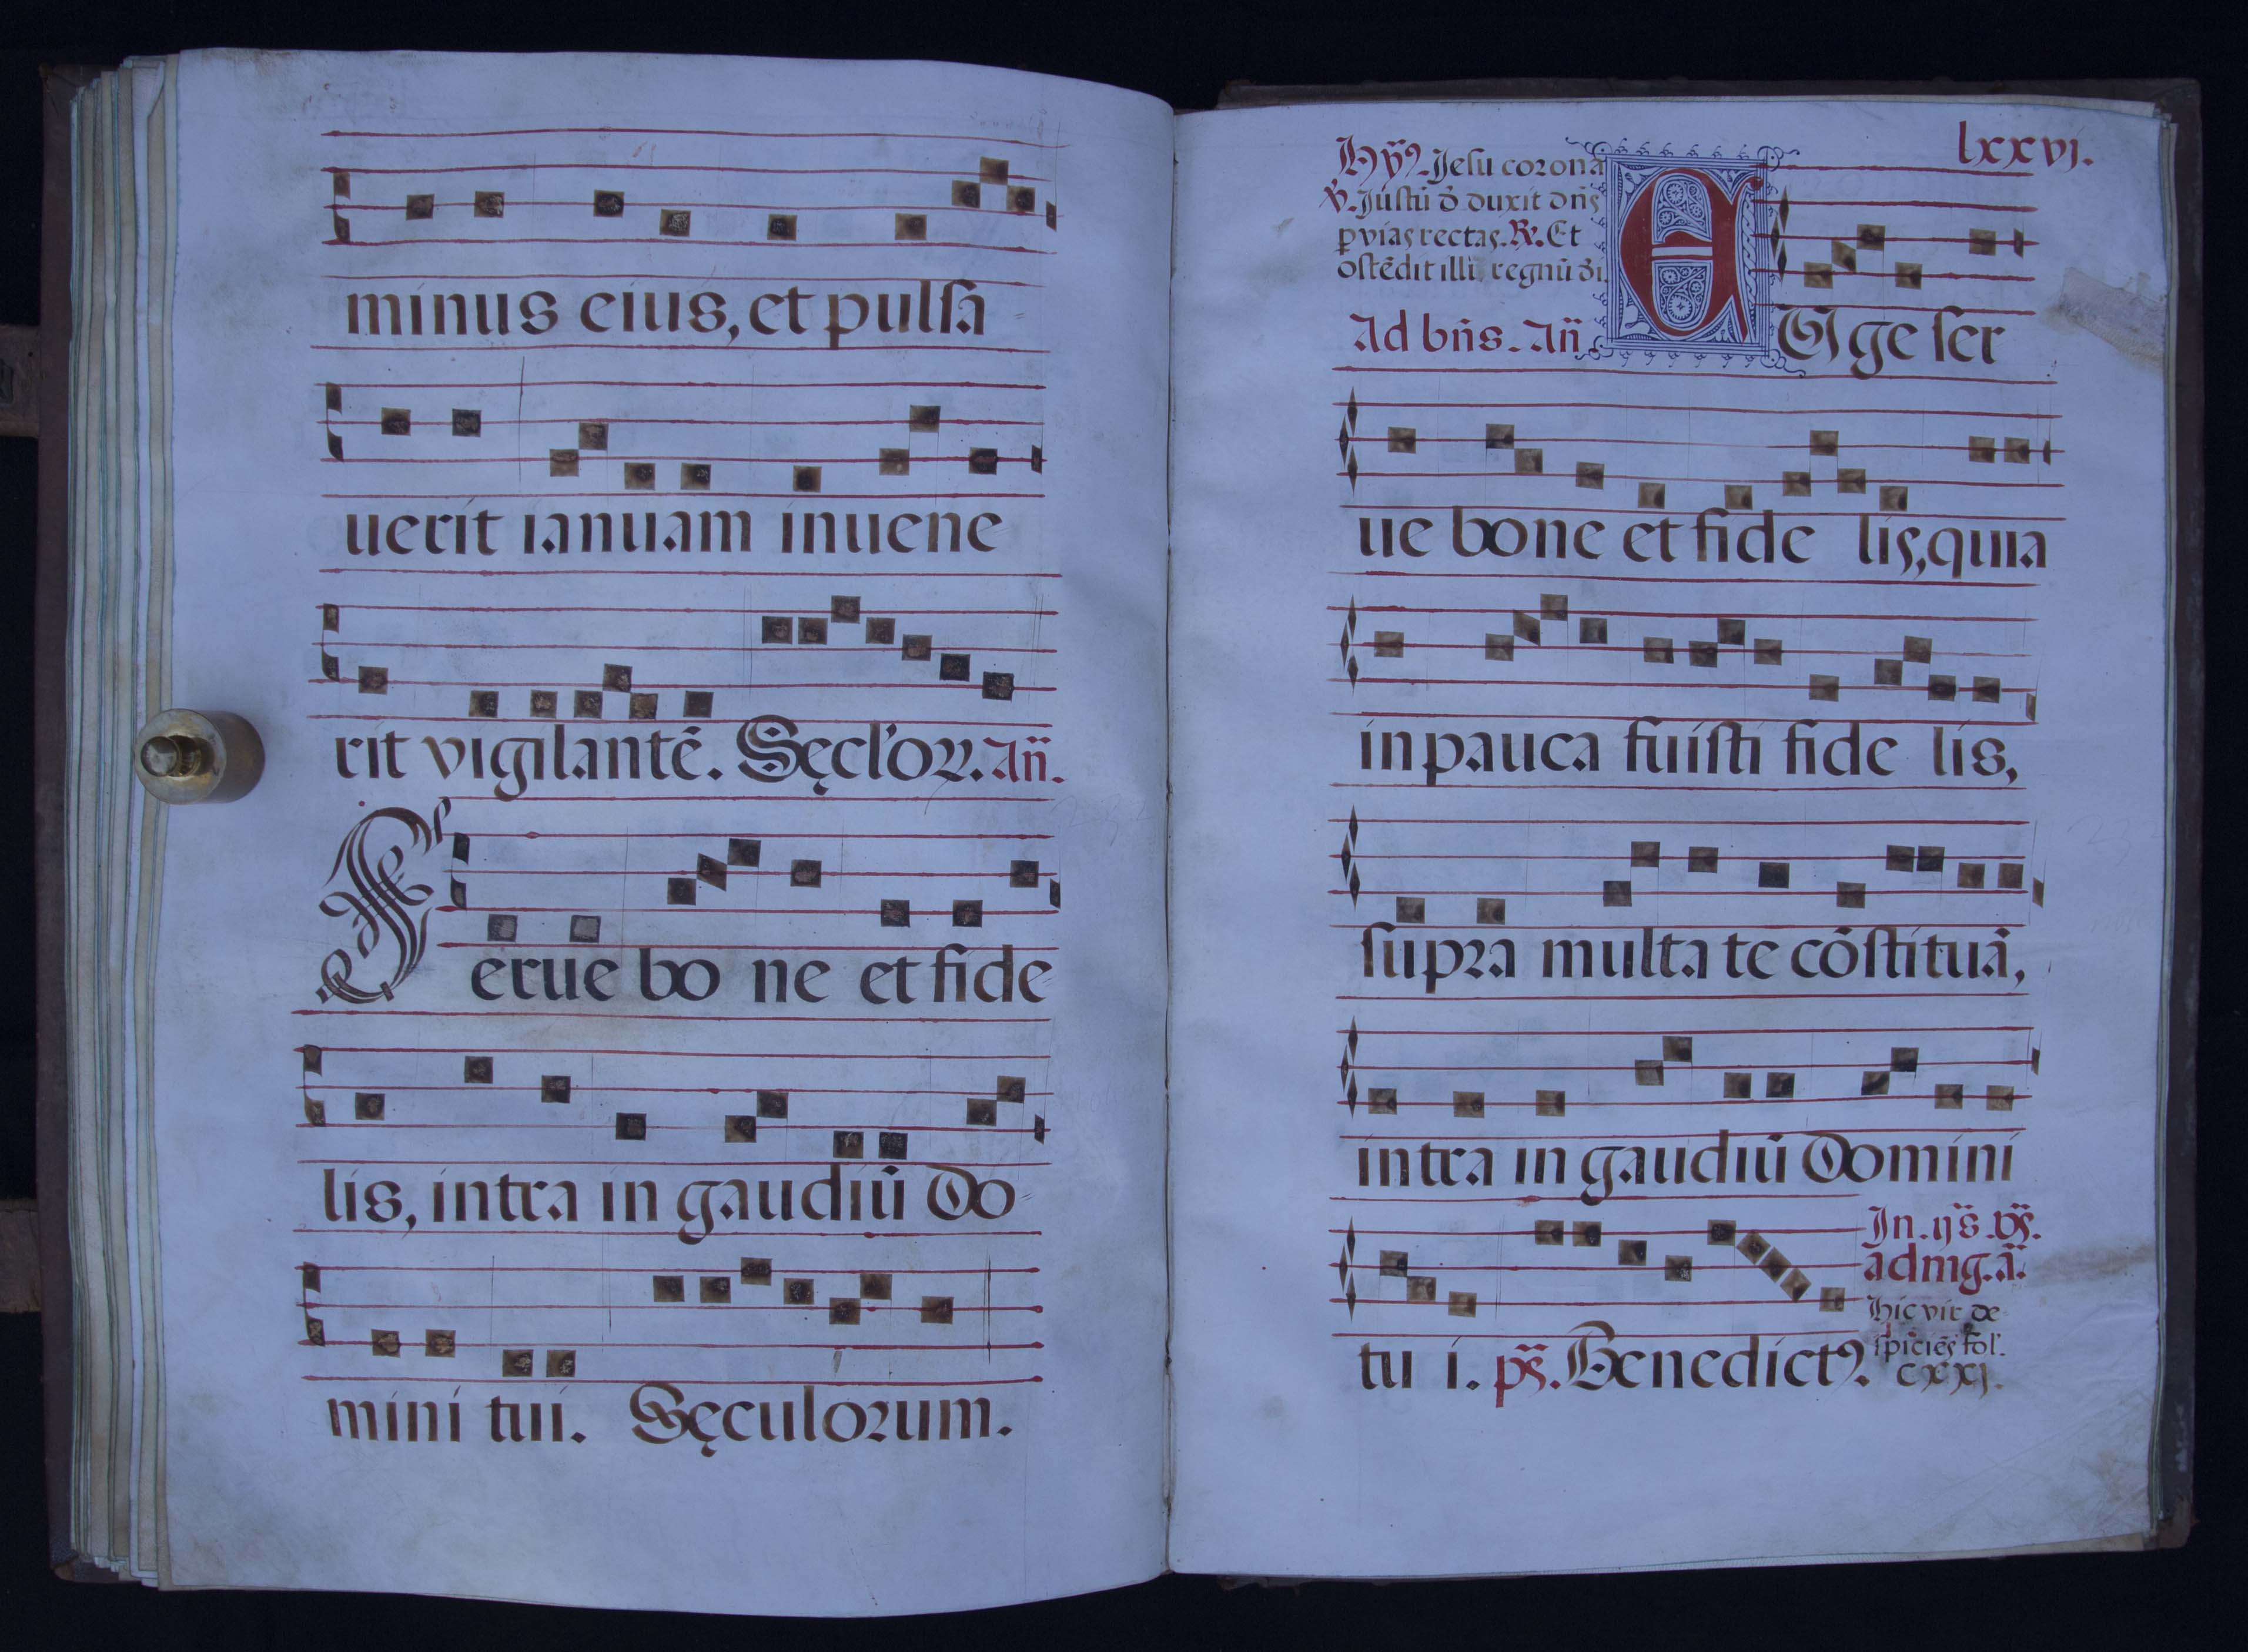 minus eius, et pulsa
uerit ianuam inuene
rit vigilantē. Sęcl'oꝝ. Añ.
Serue bo ne et fide
lis, intra in gaudiū Do
mini tui. Sęculorum.
lxxvj.
Hỹ9. Jesu corona
℣. Justū d. duxit dñs
ꝑ vias rectas. ℟. Et
ostēdit illi regnū di
Ad bñs. Añ
EUge ser
ue bone et fide lis, quia
in pauca fuisti fide lis,
supra multa te cōstituā,
intra in gaudiū Domini
tu i. ps̃. Benedict9.
In. ij s̃. vs̃.
ad mg. ã.
Hic vir de
spiciēs fol.
cxxj.